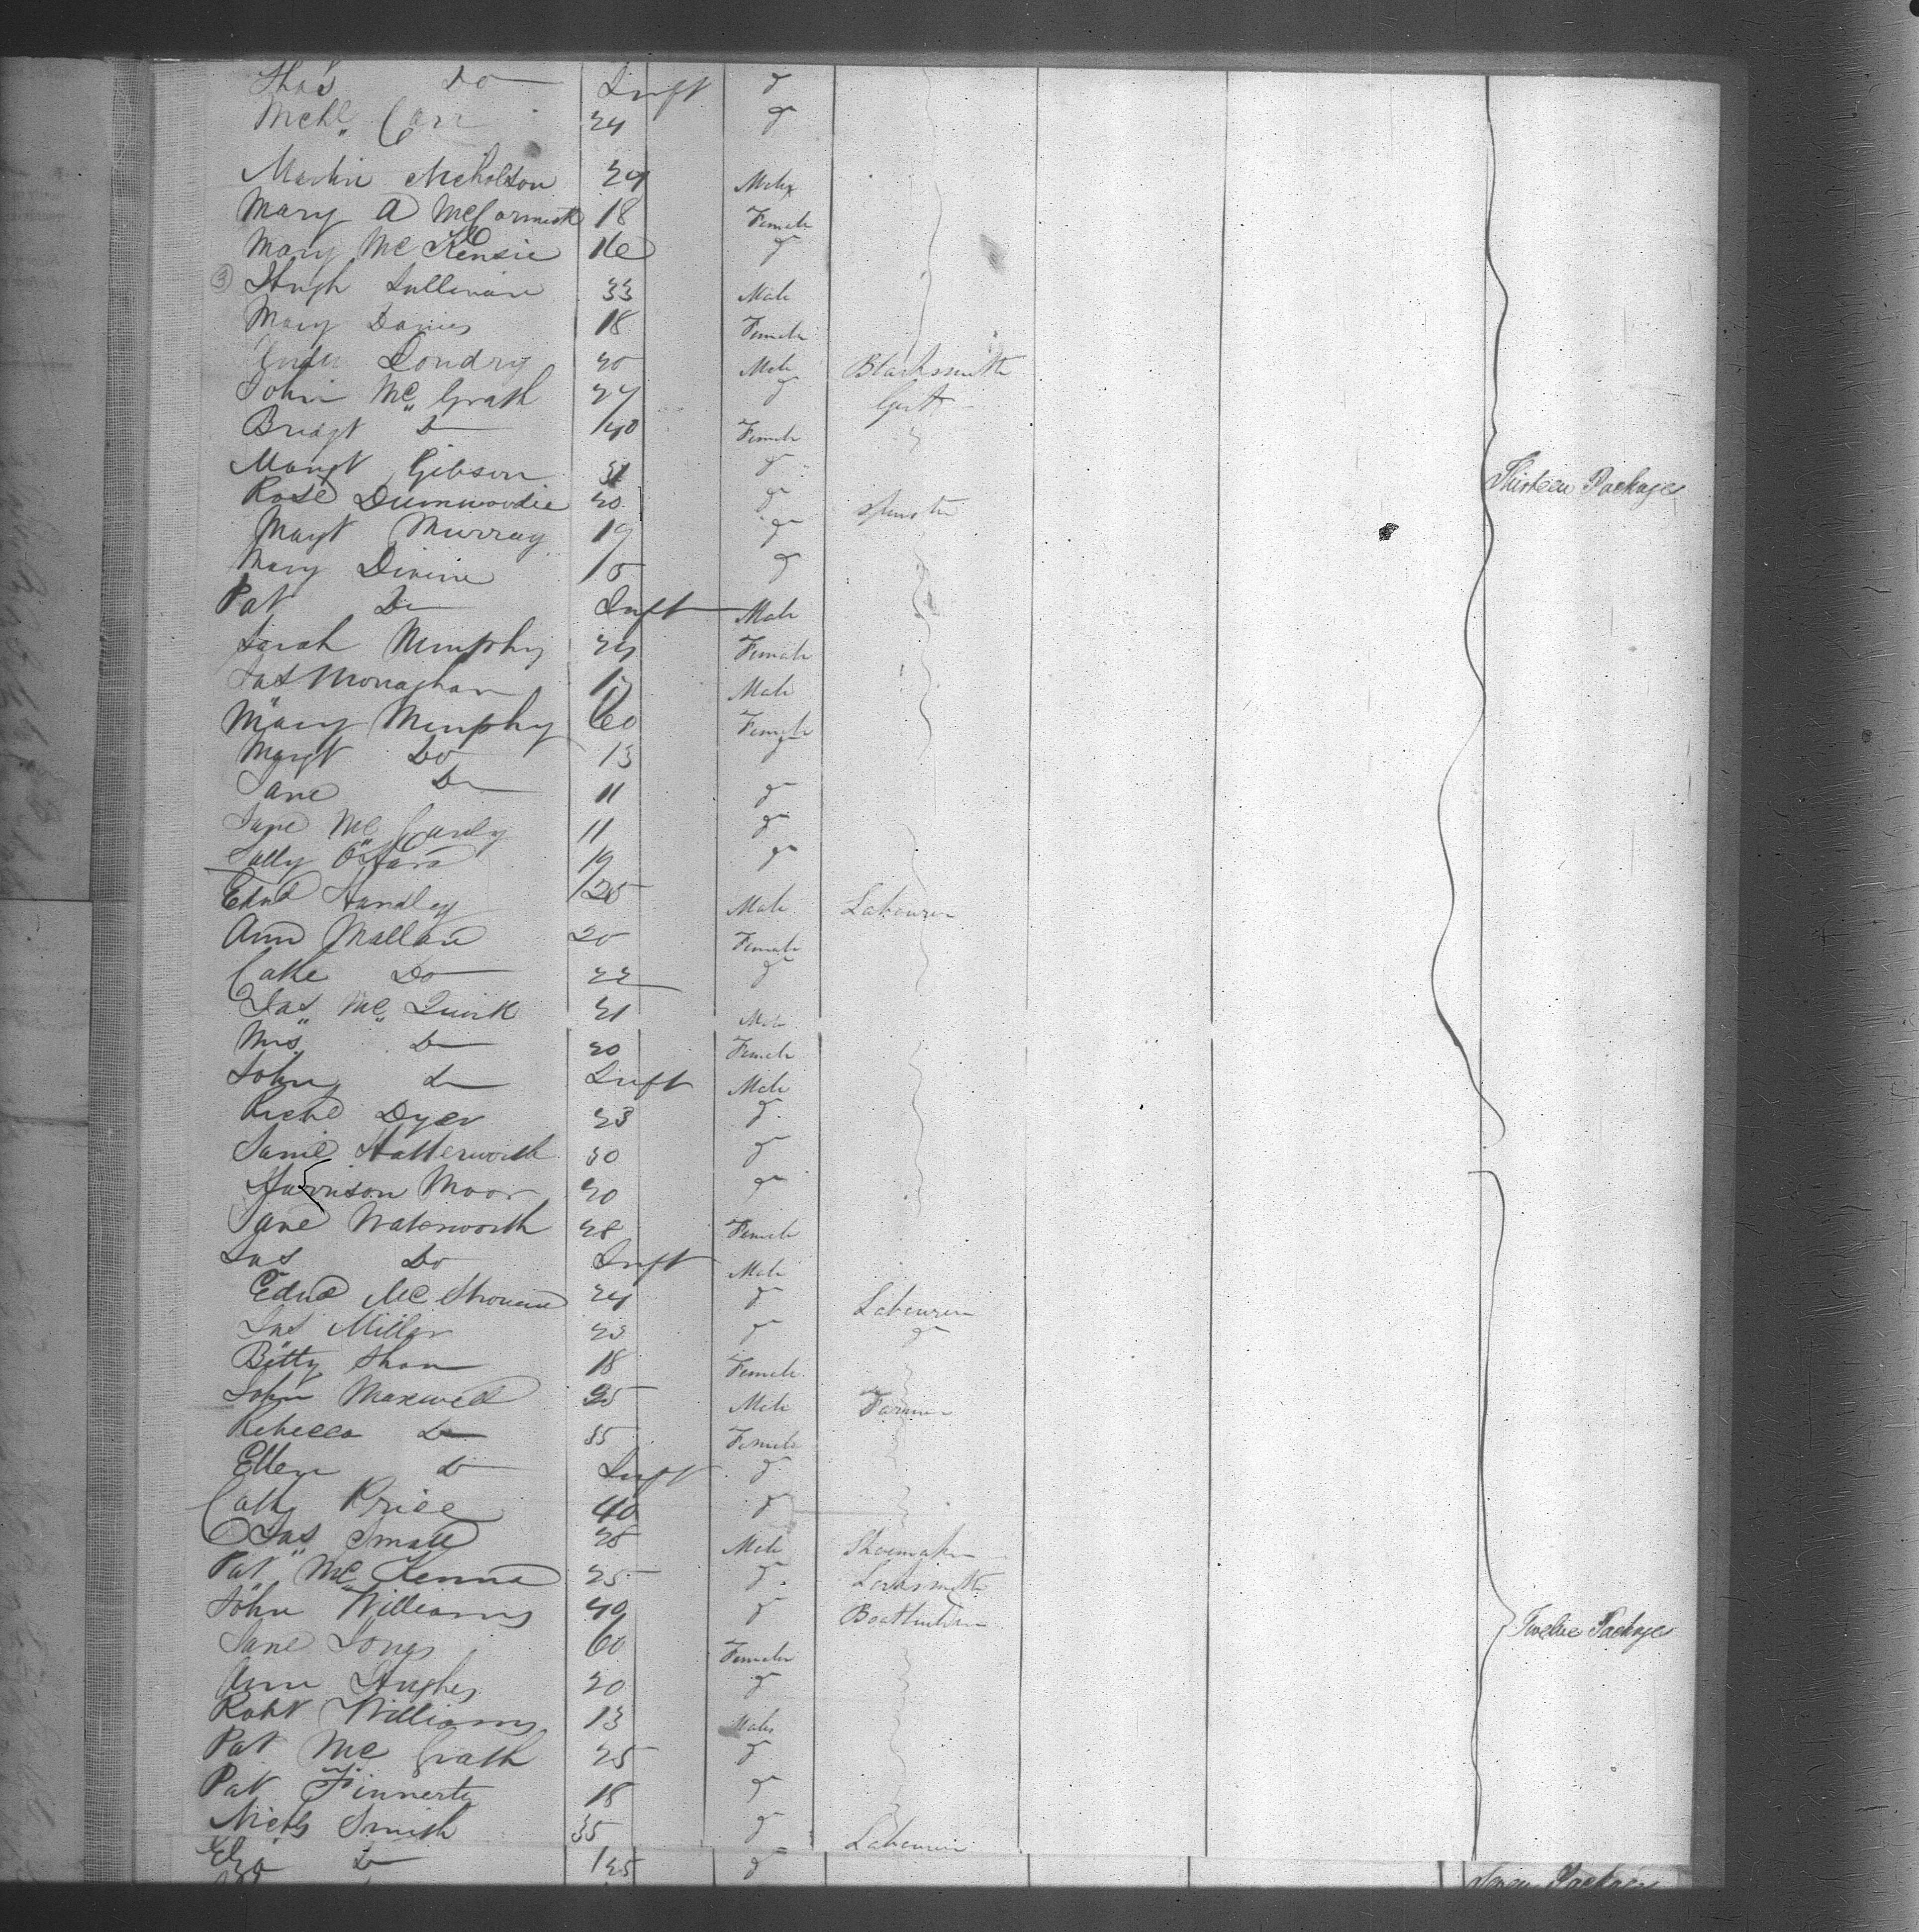 Thos Do Inft do
Mchl Carr 24 do
Martin Nicholson 24 Male
Mary A McCormick 18 Female
Mary McKensie 16 do
3 Hugh Sullivan 33 Male
Mary Davies 18 Female
Londry 20 Male Blacksmith
John McGrath 27 do
Bridgt Do 40 Female
Margt Gibson 31 do Thirteen Packages
Rose Dumwoodie 20 do Spinster
Margt Murray 19 do
Mary Divine 15 do
Pat Do Inft Male
Sarah Murphy 24 Female
Jas Monaghan 17 Male
Mary Murphy 60 Female
Margt Do 13 do
Jane Do 11 do
Jane McCauly 11 do
Sally O'Hara 19 do
Edwd Handley 25 Male Labourer
Ann Mallan 20 Female
Cathe Do 22 do
Jas McQuirk 21 Male
Mrs Do 20 Female
John Do Inft Male
Richd Dyer 23 do
Saml Hatterworth 30 do
Harrison Moor 20 do
Jane Waterworth 28 Female
Jas Do Inft Male
Edwd 24 do Labourer
Jas Miller 23 do do
Betty Shaw 18 Female
John Maxwell 35 Male Farmer
Rebecca Do 35 Female
Ellen Do Inft do
Cath Price 40 do
Jas Small 28 Male Shoemaker
Pat McKenna 25 do Locksmith
John Williams 40 do Boatbuilder
Jane Jones 60 Female Twelve Packages
Ann Hughes 20 do
Robt Williams 13 Male
Pat McGrath 25 do
Pat Finnerty 18 do
Nichs Smith 35 do Labourer
Eliza Do 25 do
Seven Packages